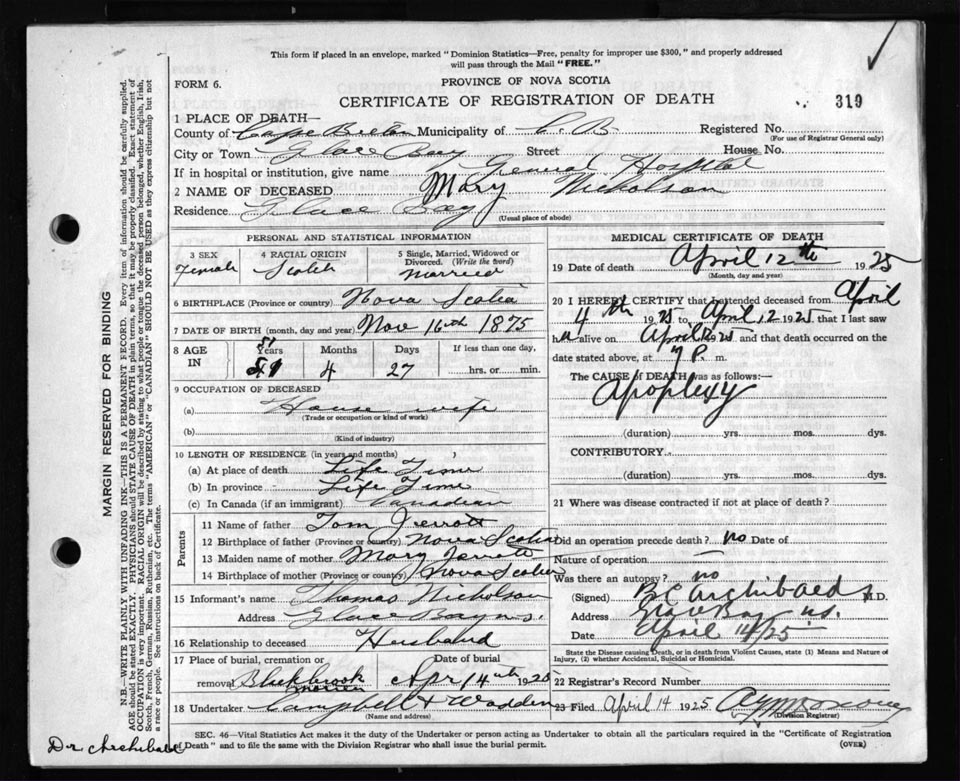 This form if placed in an envelope, marked "Dominion Statistics—Free, penalty for improper use $300," and properly addressed
will pass through the Mail "FREE."
FORM 6.
PROVINCE OF NOVA SCOTIA
CERTIFICATE OF REGISTRATION OF DEATH
319
1 PLACE OF DEATH—
County of Cape Breton Municipality of C. B Registered No.
(For use of Registrar General only)
City or Town Glace Bay Street House No.
If in hospital or institution, give name General Hospital
2 NAME OF DECEASED Mary Nicholson
Residence Glace Bay
(Usual place of abode)
PERSONAL AND STATISTICAL INFORMATION
3 SEX 4 RACIAL ORIGIN 5 Single, Married, Widowed or
Divorced. (Write the word)
Female Scotch Married
6 BIRTHPLACE (Province or country) Nova Scotia
7 DATE OF BIRTH (month, day and year) Nov 16th 1875
8 AGE IN Years Months Days If less than one day,
4 27 hrs. or min.
9 OCCUPATION OF DECEASED
(a) House wife
(Trade or occupation or kind of work)
(b)
(Kind of industry)
10 LENGTH OF RESIDENCE (in years and months)
(a) At place of death Life Time
(b) In province Life Time
(c) In Canada (if an immigrant) Canadian
Parents
11 Name of father Tom Jerrott
12 Birthplace of father (Province or country) Nova Scotia
13 Maiden name of mother Mary Jerrott
14 Birthplace of mother (Province or country) Nova Scotia
15 Informant's name Thomas Nicholson
Address Glace Bay N.S.
16 Relationship to deceased Husband
17 Place of burial, cremation or Date of burial
removal Blackbrook Apr 14th 192
Morien
18 Undertaker Campbell & Wadden
(Name and address)
MEDICAL CERTIFICATE OF DEATH
19 Date of death April 12th 1925
(Month, day and year)
20 I HEREBY CERTIFY that I attended deceased from April
4th 1925 to April 12 1925 that I last saw
h alive on April 12 1925 and that death occurred on the
date stated above, at 7 P. m.
The CAUSE of DEATH was as follows:—
Apoplexy
(duration) yrs. mos. dys.
CONTRIBUTORY.
(duration) yrs. mos. dys.
21 Where was disease contracted if not at place of death?
Did an operation precede death? no Date of
Nature of operation —
Was there an autopsy? no
(Signed) B C Archibald M.D.
Address Glace Bay N.S.
Date April 14/25
State the Disease causing Death, or in death from Violent Causes, state (1) Means and Nature of
Injury, (2) whether Accidental, Suicidal or Homicidal.
22 Registrar's Record Number
23 Filed April 14 1925
(Division Registrar)
SEC. 46—Vital Statistics Act makes it the duty of the Undertaker or person acting as Undertaker to obtain all the particulars required in the "Certificate of Registration
of Death" and to file the same with the Division Registrar who shall issue the burial permit.
(OVER)
MARGIN RESERVED FOR BINDING
N.B.—WRITE PLAINLY WITH UNFADING INK—THIS IS A PERMANENT RECORD. Every item of information should be carefully supplied.
AGE should be stated EXACTLY. PHYSICIANS should STATE CAUSE OF DEATH in plain terms, so that it may be properly classified. Exact statement of
OCCUPATION is very important. RACIAL ORIGIN will be described by stating to what people or tongue the deceased person belonged, whether English, Irish,
Scotch, French, German, Russian, Ruthenian, etc. The terms "AMERICAN" or "CANADIAN" SHOULD NOT BE USED as they express citizenship but not
a race or people. See instructions on back of Certificate.
Dr Archibald